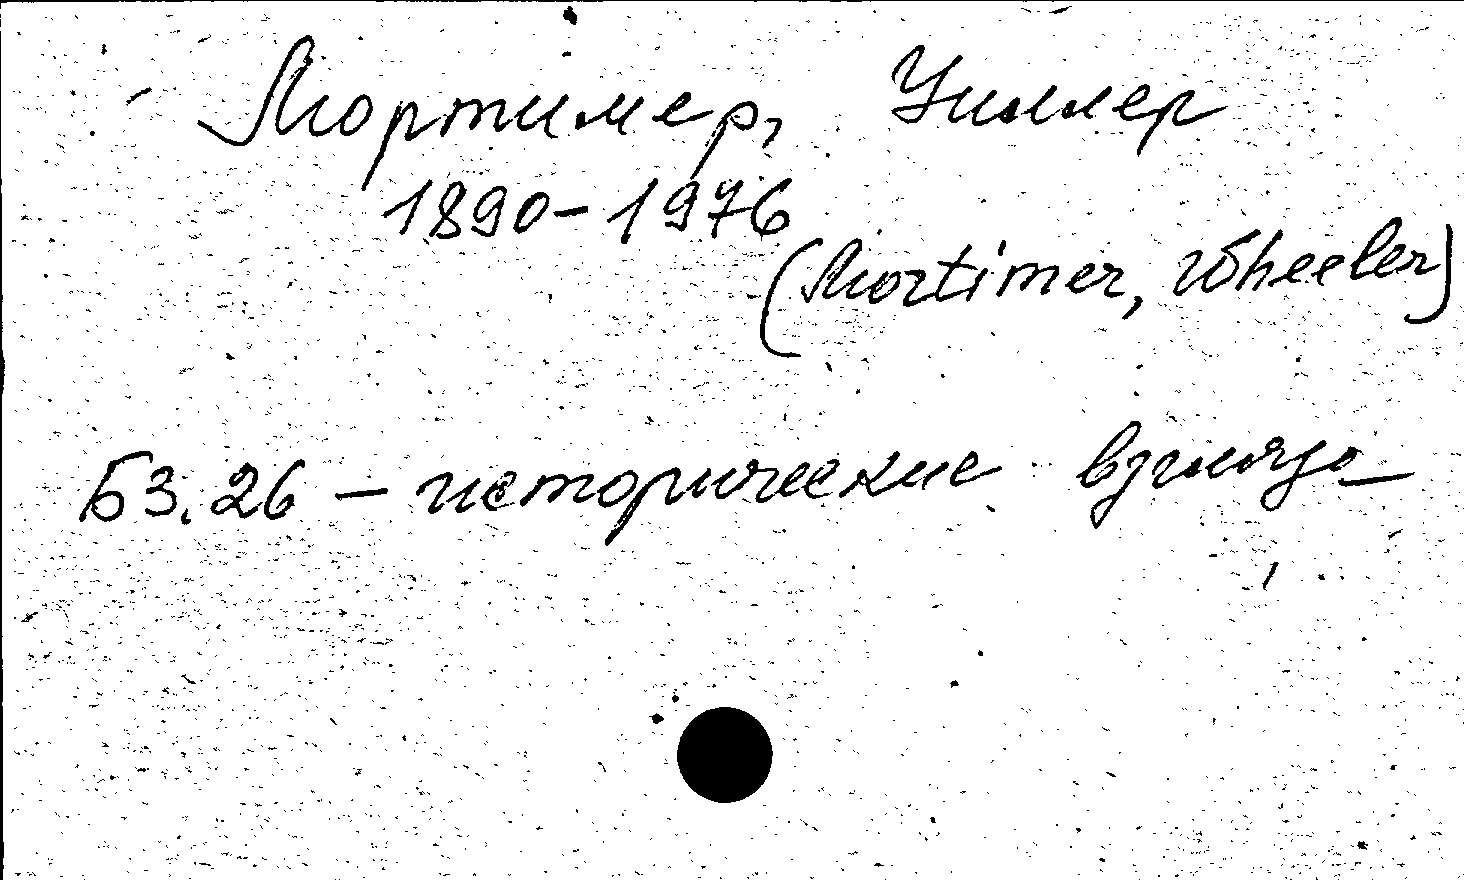 Мортимер, Уиллер
1890-1976
(Mortimer, Wheeler)
Б3.26 – исторические взгляды